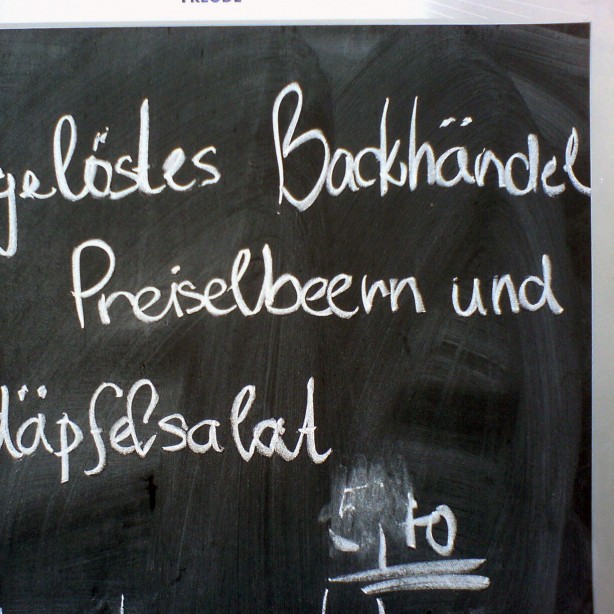 gelöstes Backhändel
Preiselbeern und
däpfelsalat